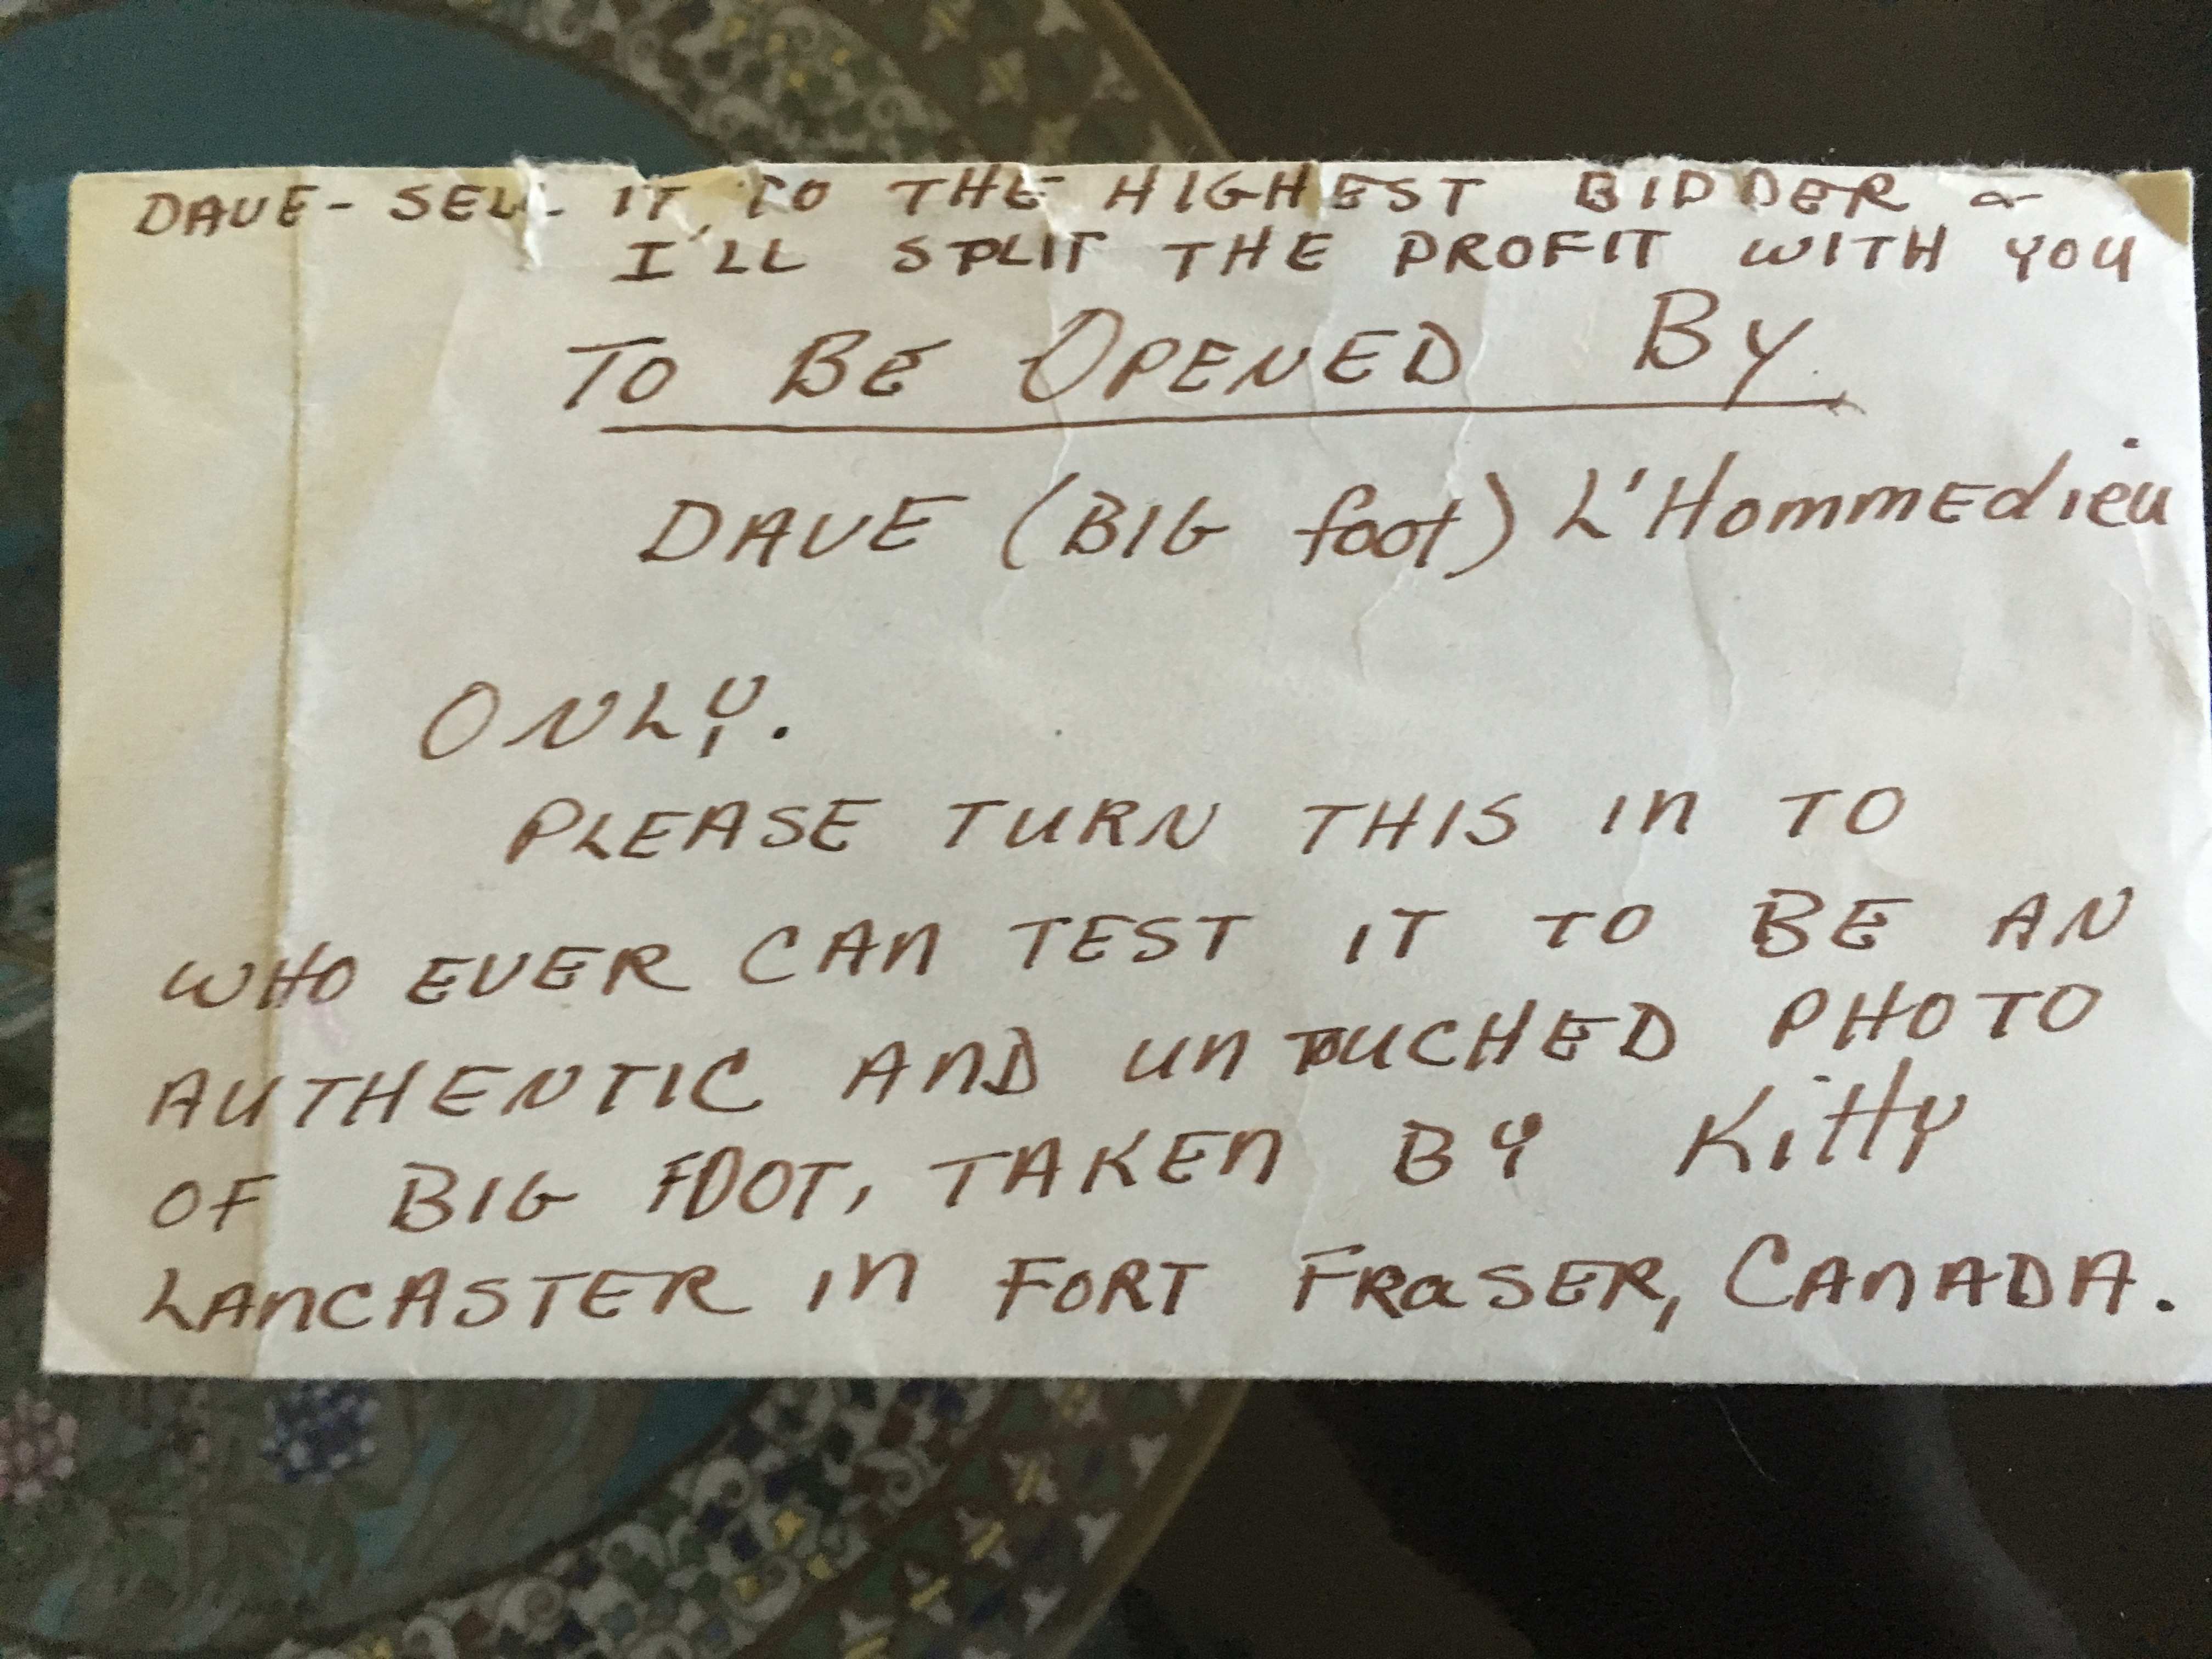 DAVE - SELL IT TO THE HIGHEST BIDDER &
I'LL SPLIT THE PROFIT WITH YOU
TO BE OPENED BY
DAVE (BIG foot) L'HommEdieu
ONLY.
PLEASE TURN THIS in TO
WHO EVER CAn TEST IT TO BE AN
AUTHENTIC AnD un TOUCHED PHOTO
OF BIG FOOT, TAKEn BY Kitty
LAnCASTER in FORT FRaSER, CAnADA.